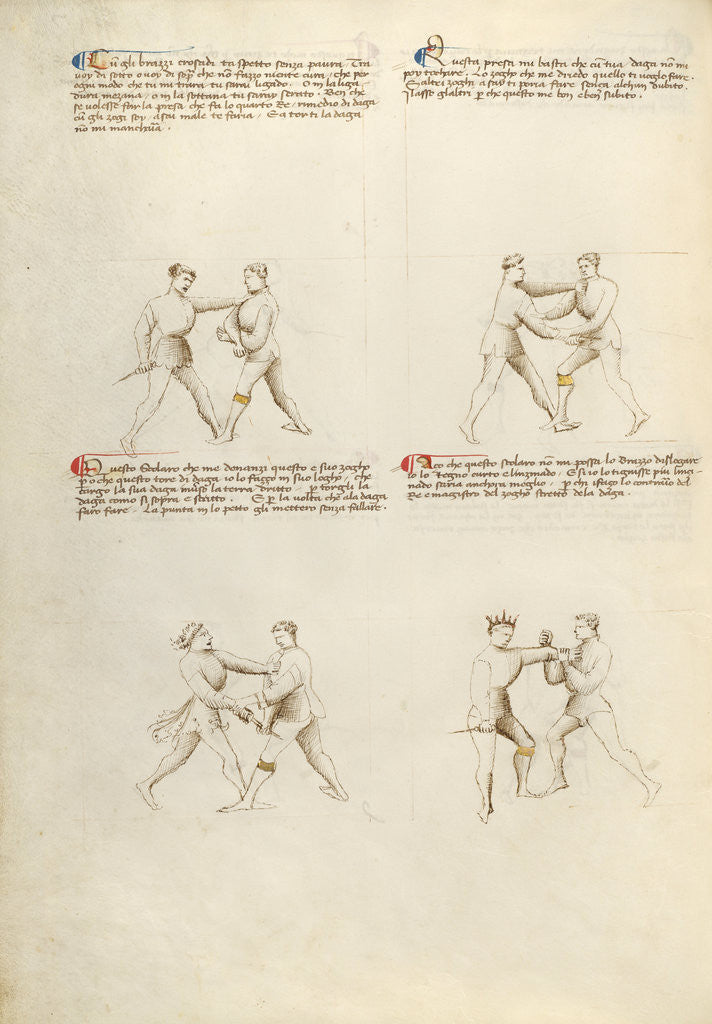 Cum gli brazzi crosadi taspetto senza paura. Tra
voy di sotto o voy di sopra che non fazzo niente cura, che per
ogni modo che tu mi trara tu sarai ligado. O in la liga-
dura mezana, o in la sottana tu saray serato. Ben che
se volesse far la presa che fa lo quarto Re, rimedio di daga
cum gli zogi soy, asai male te faria, E a torti la daga
no mi manchiria.
Questa presa mi basta che cum tua daga non mi
poy tochare. Lo zogho che me diredo quello ti voglio fare.
E altri zoghi asay ti poria fare senza alchun dubito.
I lasse gl altri per che questo me bon e ben subito.
Questo Scolaro che me denanzi questo e suo zogho
po che questo tore di daga io lo fazzo in suo logho, che
io torgo la sua daga inverso la terra dritto, per torgli la
daga como i si sopra e scritto. E per la volta che ala daga
faro fare, La punta in lo petto gli mettero senza fallare.
Aço che questo scolaro non mi possa lo brazzo dislogare
io lo tegno curto e linzinado. E si io lo tignisse più linci-
nado saria anchora meglio, per chi i fazo lo contrario del
Re e magistro del zogho stretto de la daga.